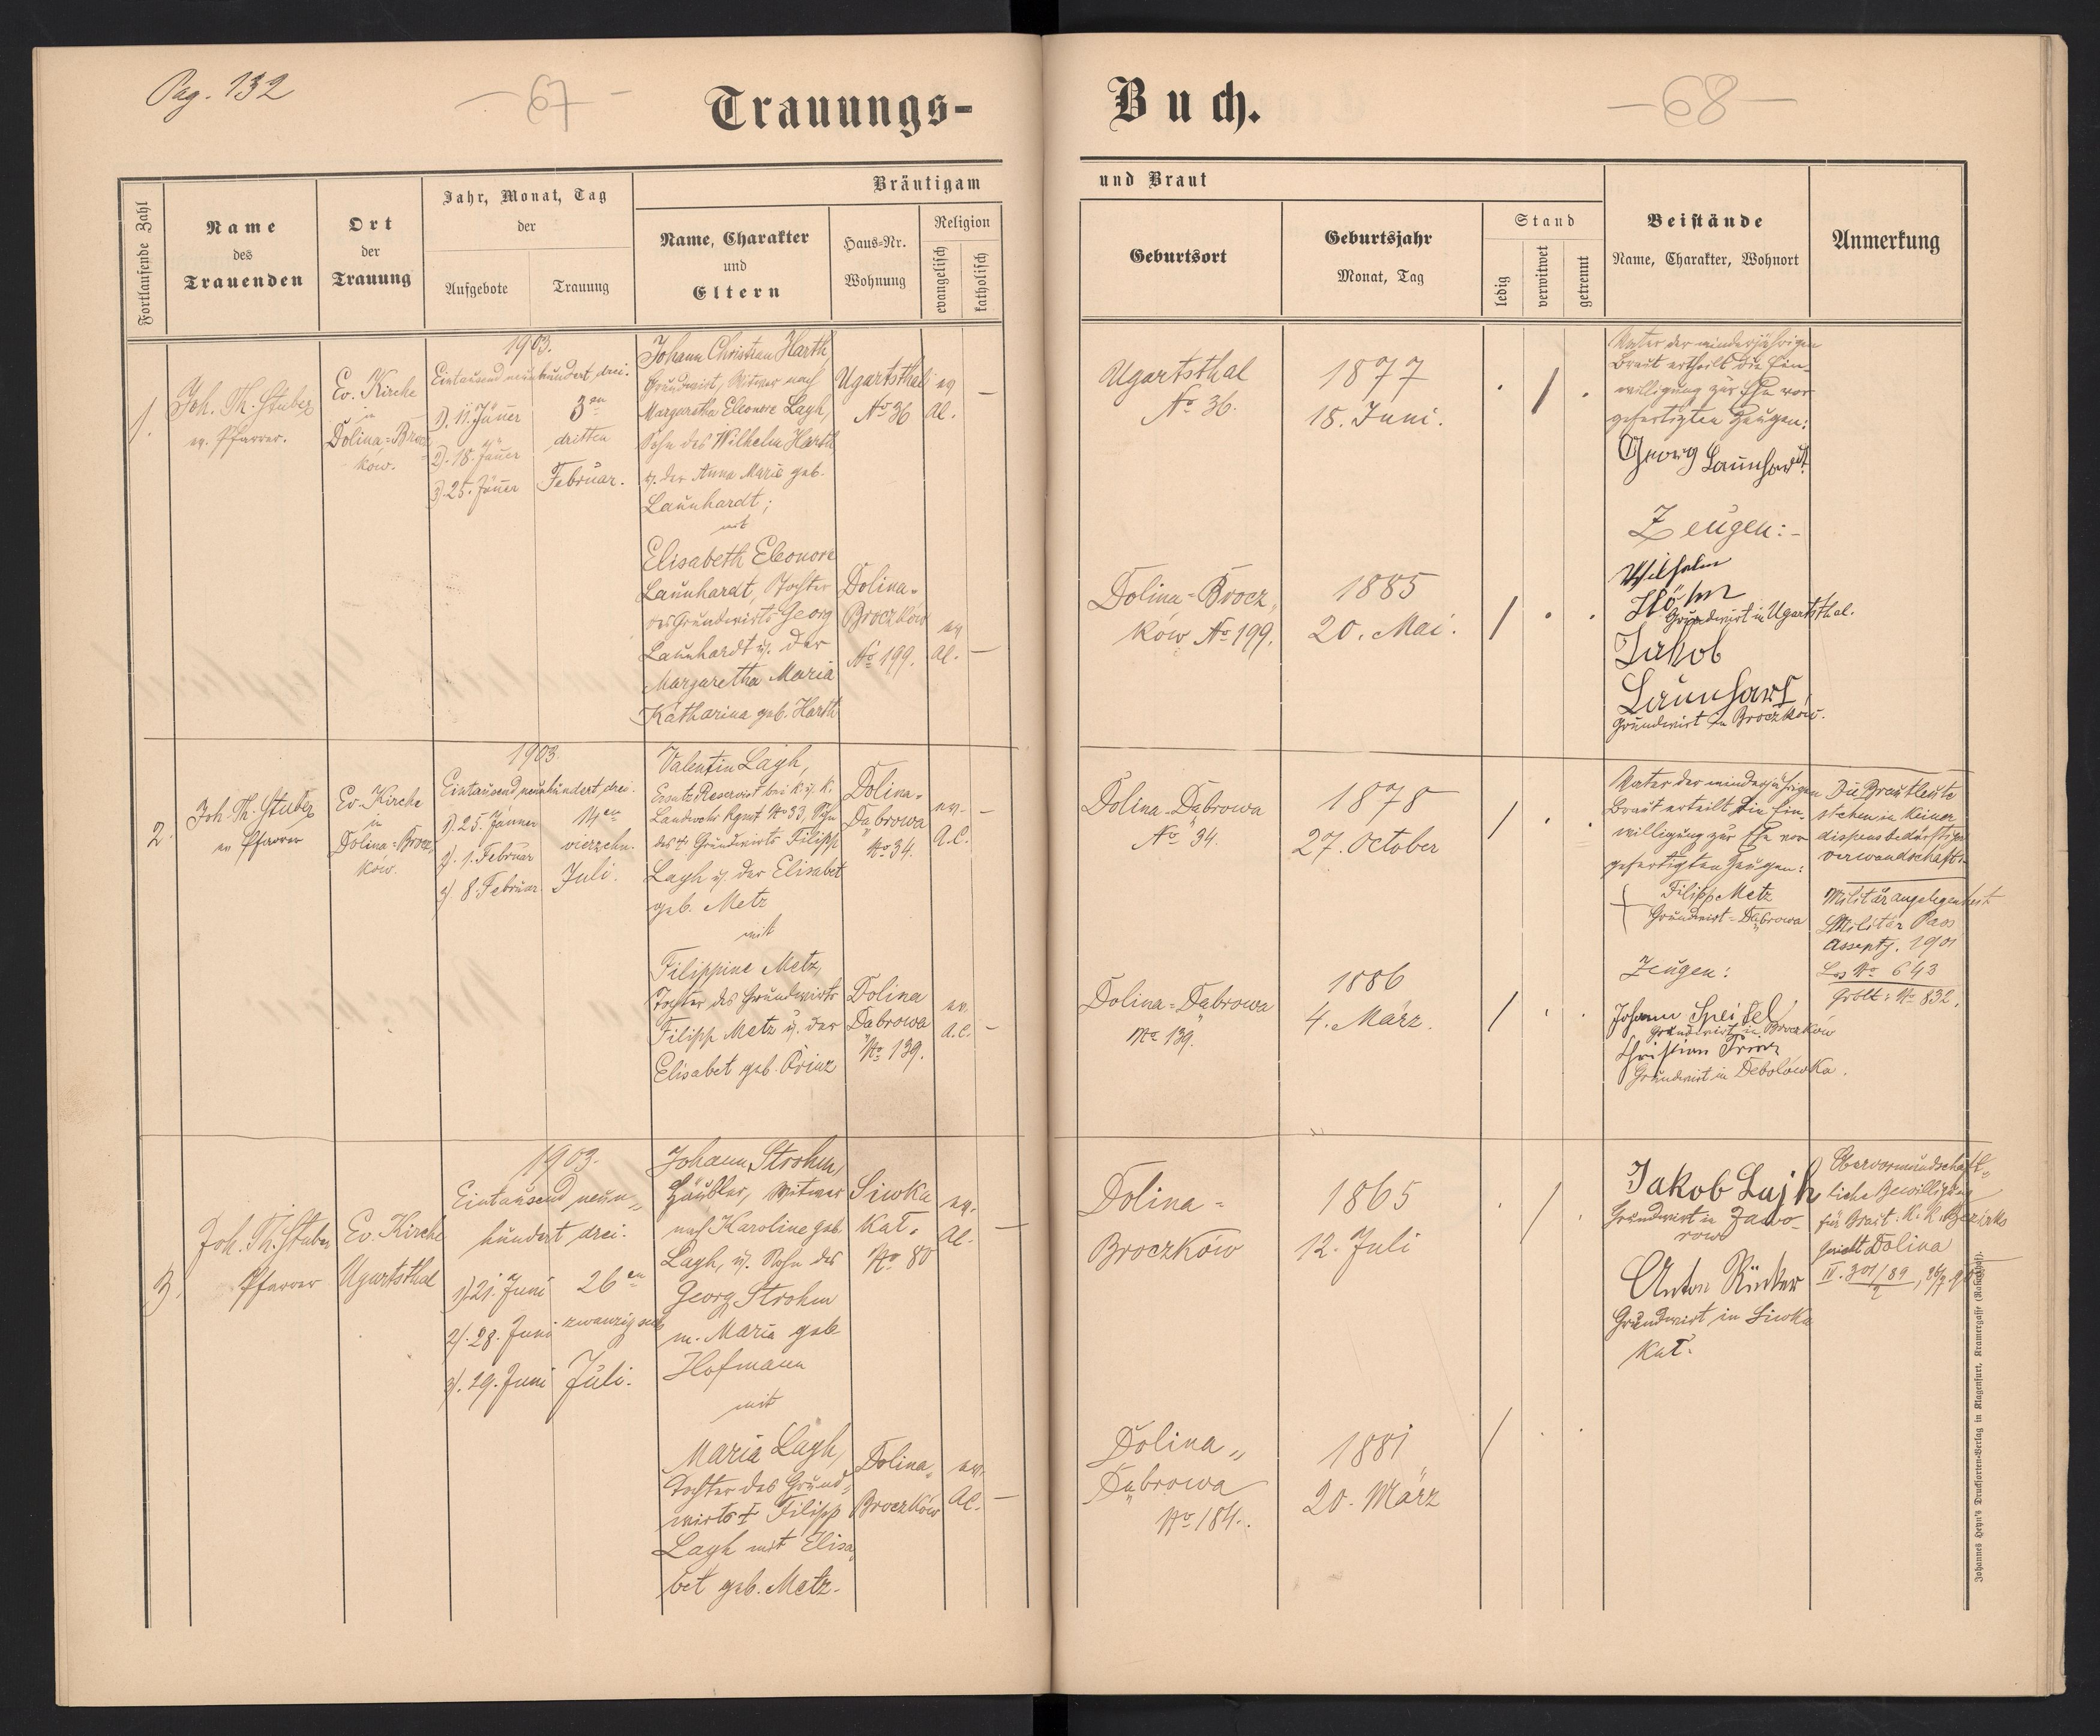 Pag. 132
67
Trauungs-
Buch.
68
Fortlaufende Zahl
Name
des
Trauenden
Ort
der
Trauung
Jahr, Monat, Tag
der
Aufgebote
Trauung
Bräutigam
Name, Charakter
und
Eltern
Haus-Nr.
Wohnung
Religion
evangelisch
katholisch
und Braut
Geburtsort
Geburtsjahr
Monat, Tag
Stand
ledig
verwitwet
getrennt
Beistände
Name, Charakter, Wohnort
Anmerkung
1.
Joh. Th. Stuber
ev. Pfarrer.
Ev. Kirche
in
Dolina=Brocz
ków.
1903.
Eintausend neunhundert drei.
1). 11. Jäner
2). 18. Jäner
3). 25. Jäner
3en
dritten
Februar.
Johann Christian Harth,
Grundwirt, Witwer nach
Margaretha Eleonore Lagh,
Sohn des Wilhelm Harth
u. der Anna Maria geb.
Launhardt;
mit
Elisabeth Eleonore
Launhardt, Tochter
des Grundwirts Georg
Launhardt u. der
Margaretha Maria
Katharina geb. Harth
Ugartsthal
No 36
ev
Al.
—
Dolina-
Broczków
No 199.
ev
Al.
—
Ugartsthal
No 36.
1877
18. Juni.
Dolina=Brocz„
ków No 199.
1885
20. Mai.
Vater der minderjährigen
Braut ertheilt die Ein-
willigung zur Ehe vor
gefertigten Zeugen:
Georg Launhardt
Zeugen:-
Wilhelm
Höhn
Grundwirt in Ugartsthal.
Jakob
Launhart,
Grundwirt in Broczków.
2.
Joh. Th. Stuber
ev Pfarrer
Ev. Kirche
in
Dolina=Brocz„
ków.
1903
Eintausend neunhundert, drei.
1). 25. Jänner
2). 1. Februar
3) 8. Februar
14en
vierzehn.
Juli.
Valentin Lagh,
Ersatz Reservist bei k. u. k.
Landwehr Rgmt No 33, Sohn
des † Grundwirts Filipp
Lagh u. der Elisabet
geb. Metz
mit
Filippine Metz,
Tochter des Grundwirts
Filipp Metz u. der
Elisabet geb. Prinz
Dolina-
Dąbrowa
No 34.
ev.
A.C.
—
Dolina
Dąbrowa
No 139.
ev.
A.C.
—
Dolina-Dąbrowa
No 34.
1878
27. October
Dolina=Dąbrowa
No 139.
1886
4. März.
Vater der minderjährigen
Braut erteilt die Ein-
willigung zur Ehe vor
gefertigten Zeugen:
Filipp Metz
Grundwirt=Dąbrowa
Zeugen:
Johann Speifel
Grundwirt in Broczków
Christian Prinz
Grundwirt in Debolówka.
Die Brautleute
stehen in keiner
dispensbedürftigen
verwandschaft.
Militärangelegenheit
Militär Pass
Assentj. 1901
Los No 643
Grblt: No 832.
3.
Joh. Th. Stuber
Pfarrer
Ev. Kirche
Ugartsthal
1903.
Eintausend neun„
hundert drei.
1). 21. Juni
2). 28. Juni
3). 29. Juni
26en
zwanzig sechs
Juli.
Johann Strohm,
Häusler, Witwer
nach Karoline geb.
Lagh, u. Sohn des
Georg Strohm
m. Maria geb
Hofmann
mit
Maria Lagh,
Tochter des Grund„
wirts † Filipp
Lagh mit Elisa„
bet geb. Metz.
Siwka
Kał.
No 80
ev.
Al.
—
Dolina„
Broczków
ev.
Al.
—
Dolina-
Broczków
1865
12. Juli
Dolina„
Dąbrowa
No 184.
1881
20. März
Jakob Lajh
Grundwirt in Zawo-
rów
Anton Rinker
Grundwirt in Siwka
Kał.
Obervormundschaft-
liche Bewilligung
für Braut: K. k. Bezirks
Gericht Dolina
Johannes Heyn's Drucksorten-Verlag in Klagenfurt, Kramergasse (Rakofchof).